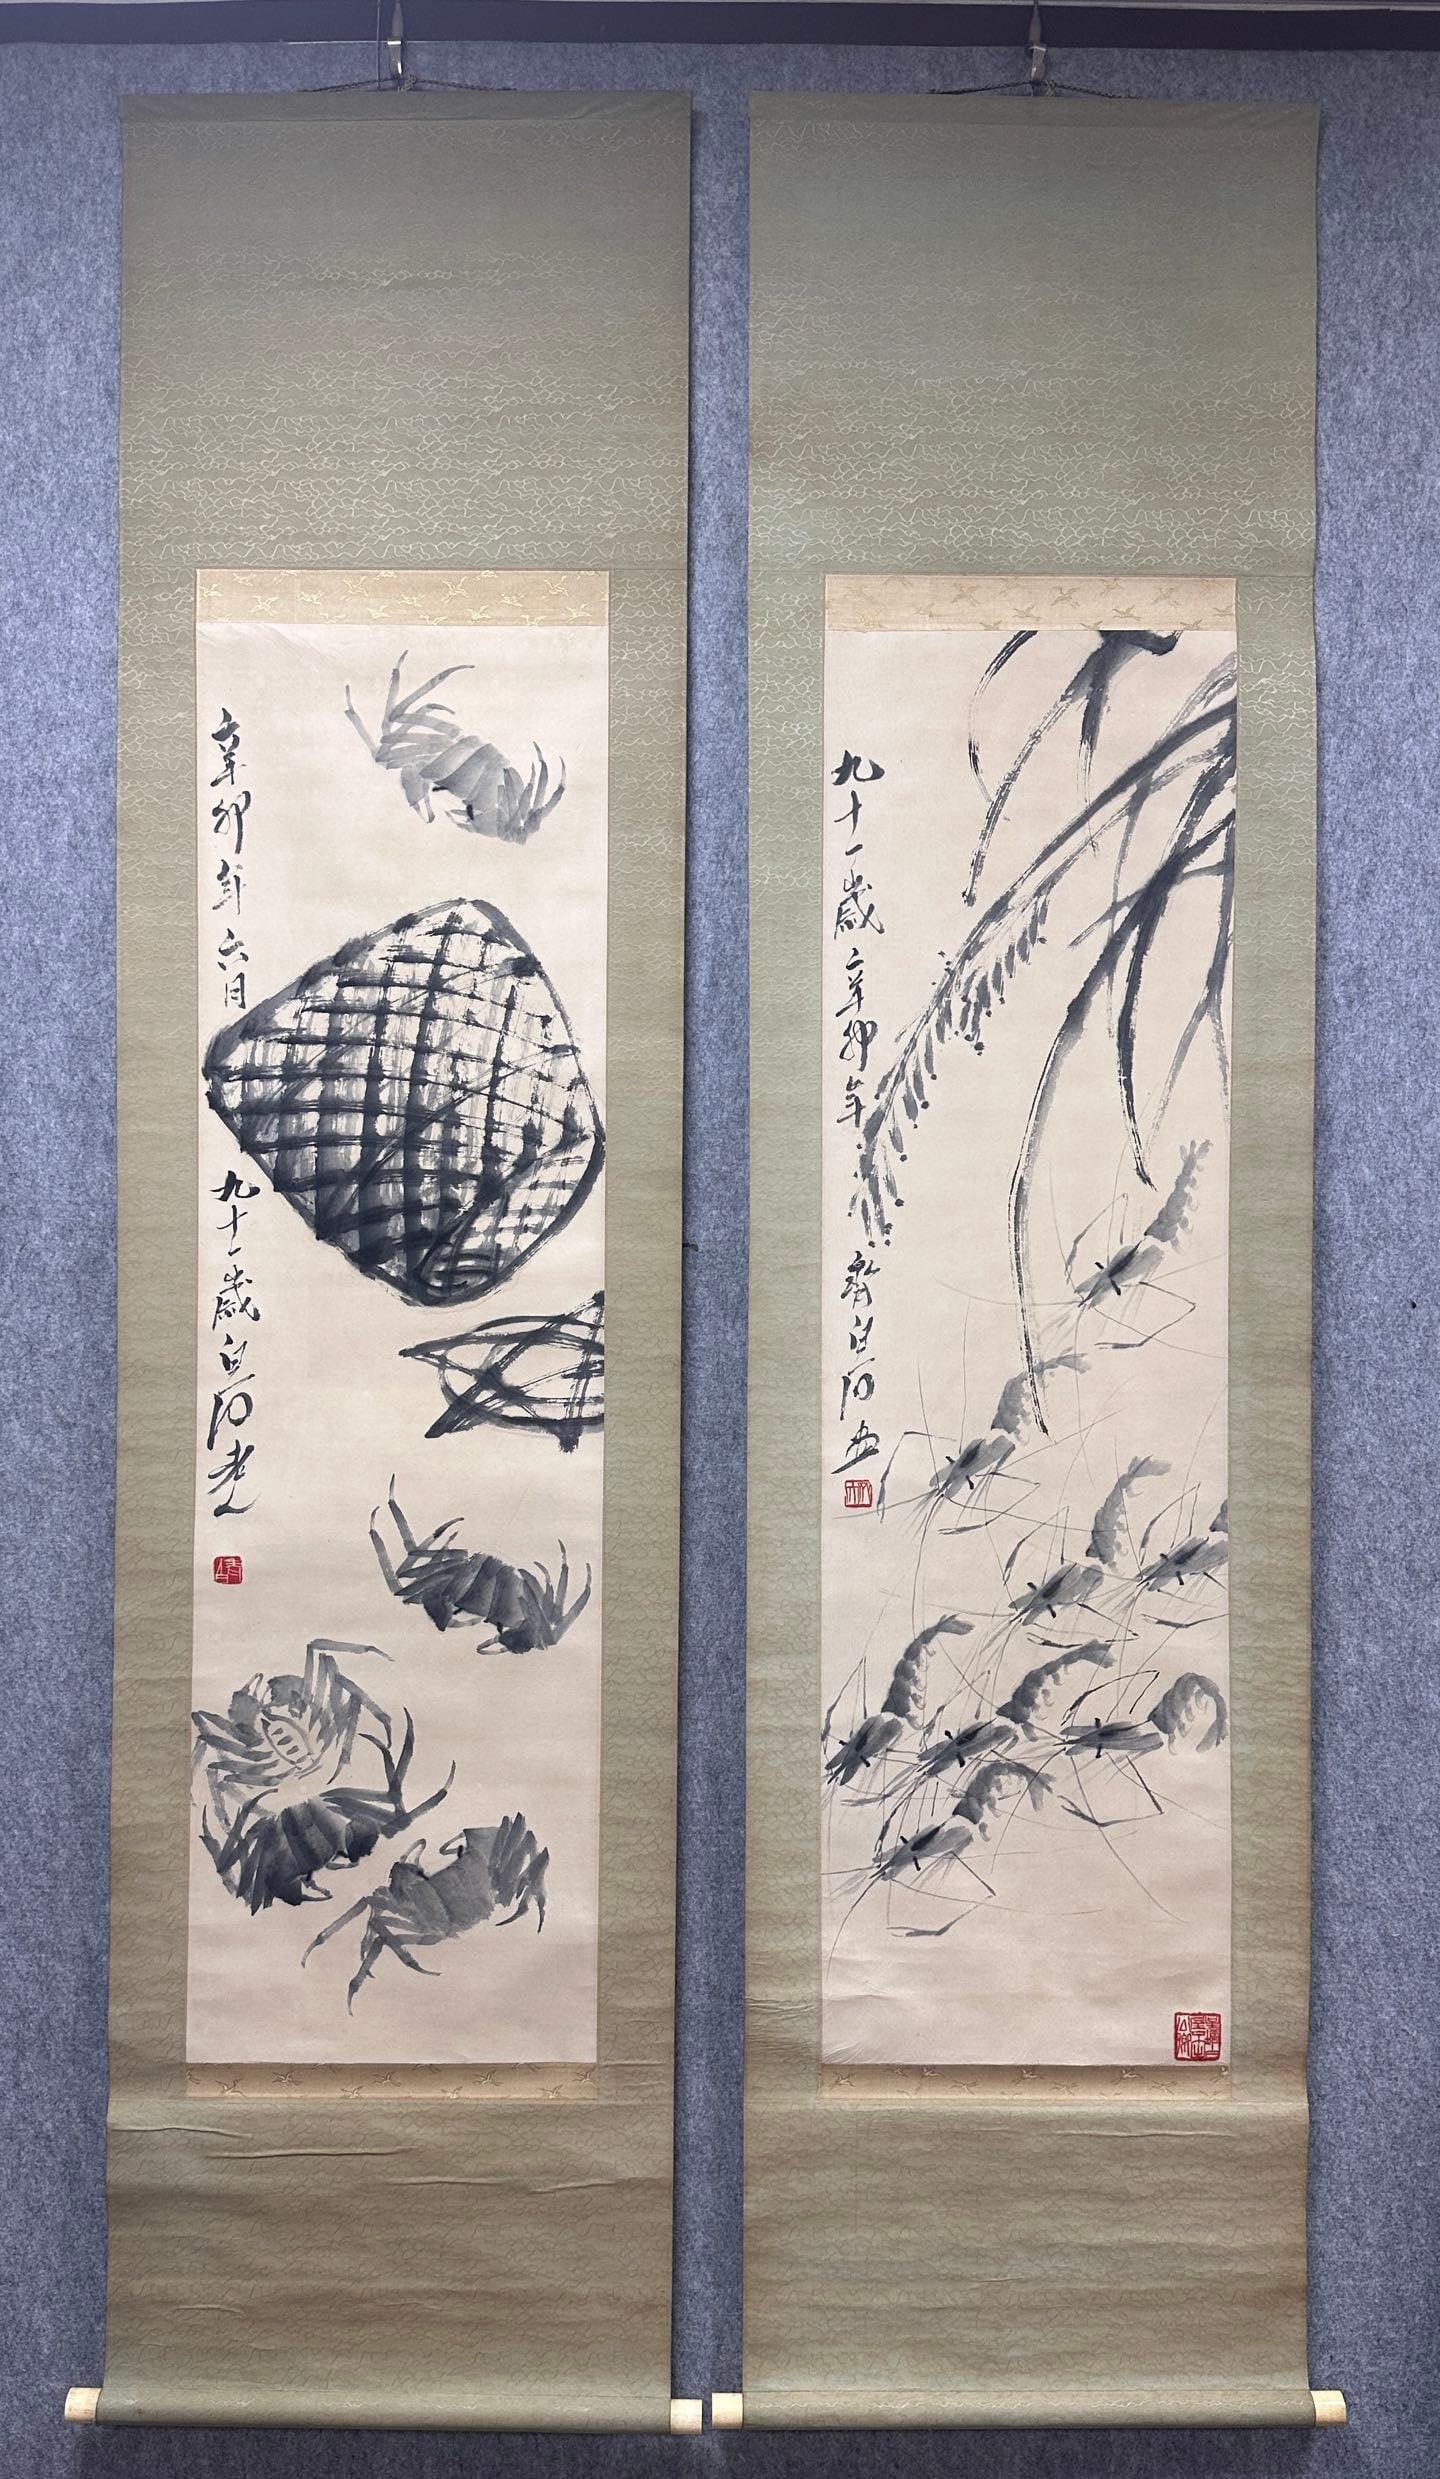 辛卯年六月
九十一歲白石老人
九十一歲辛卯年
齊白石畫